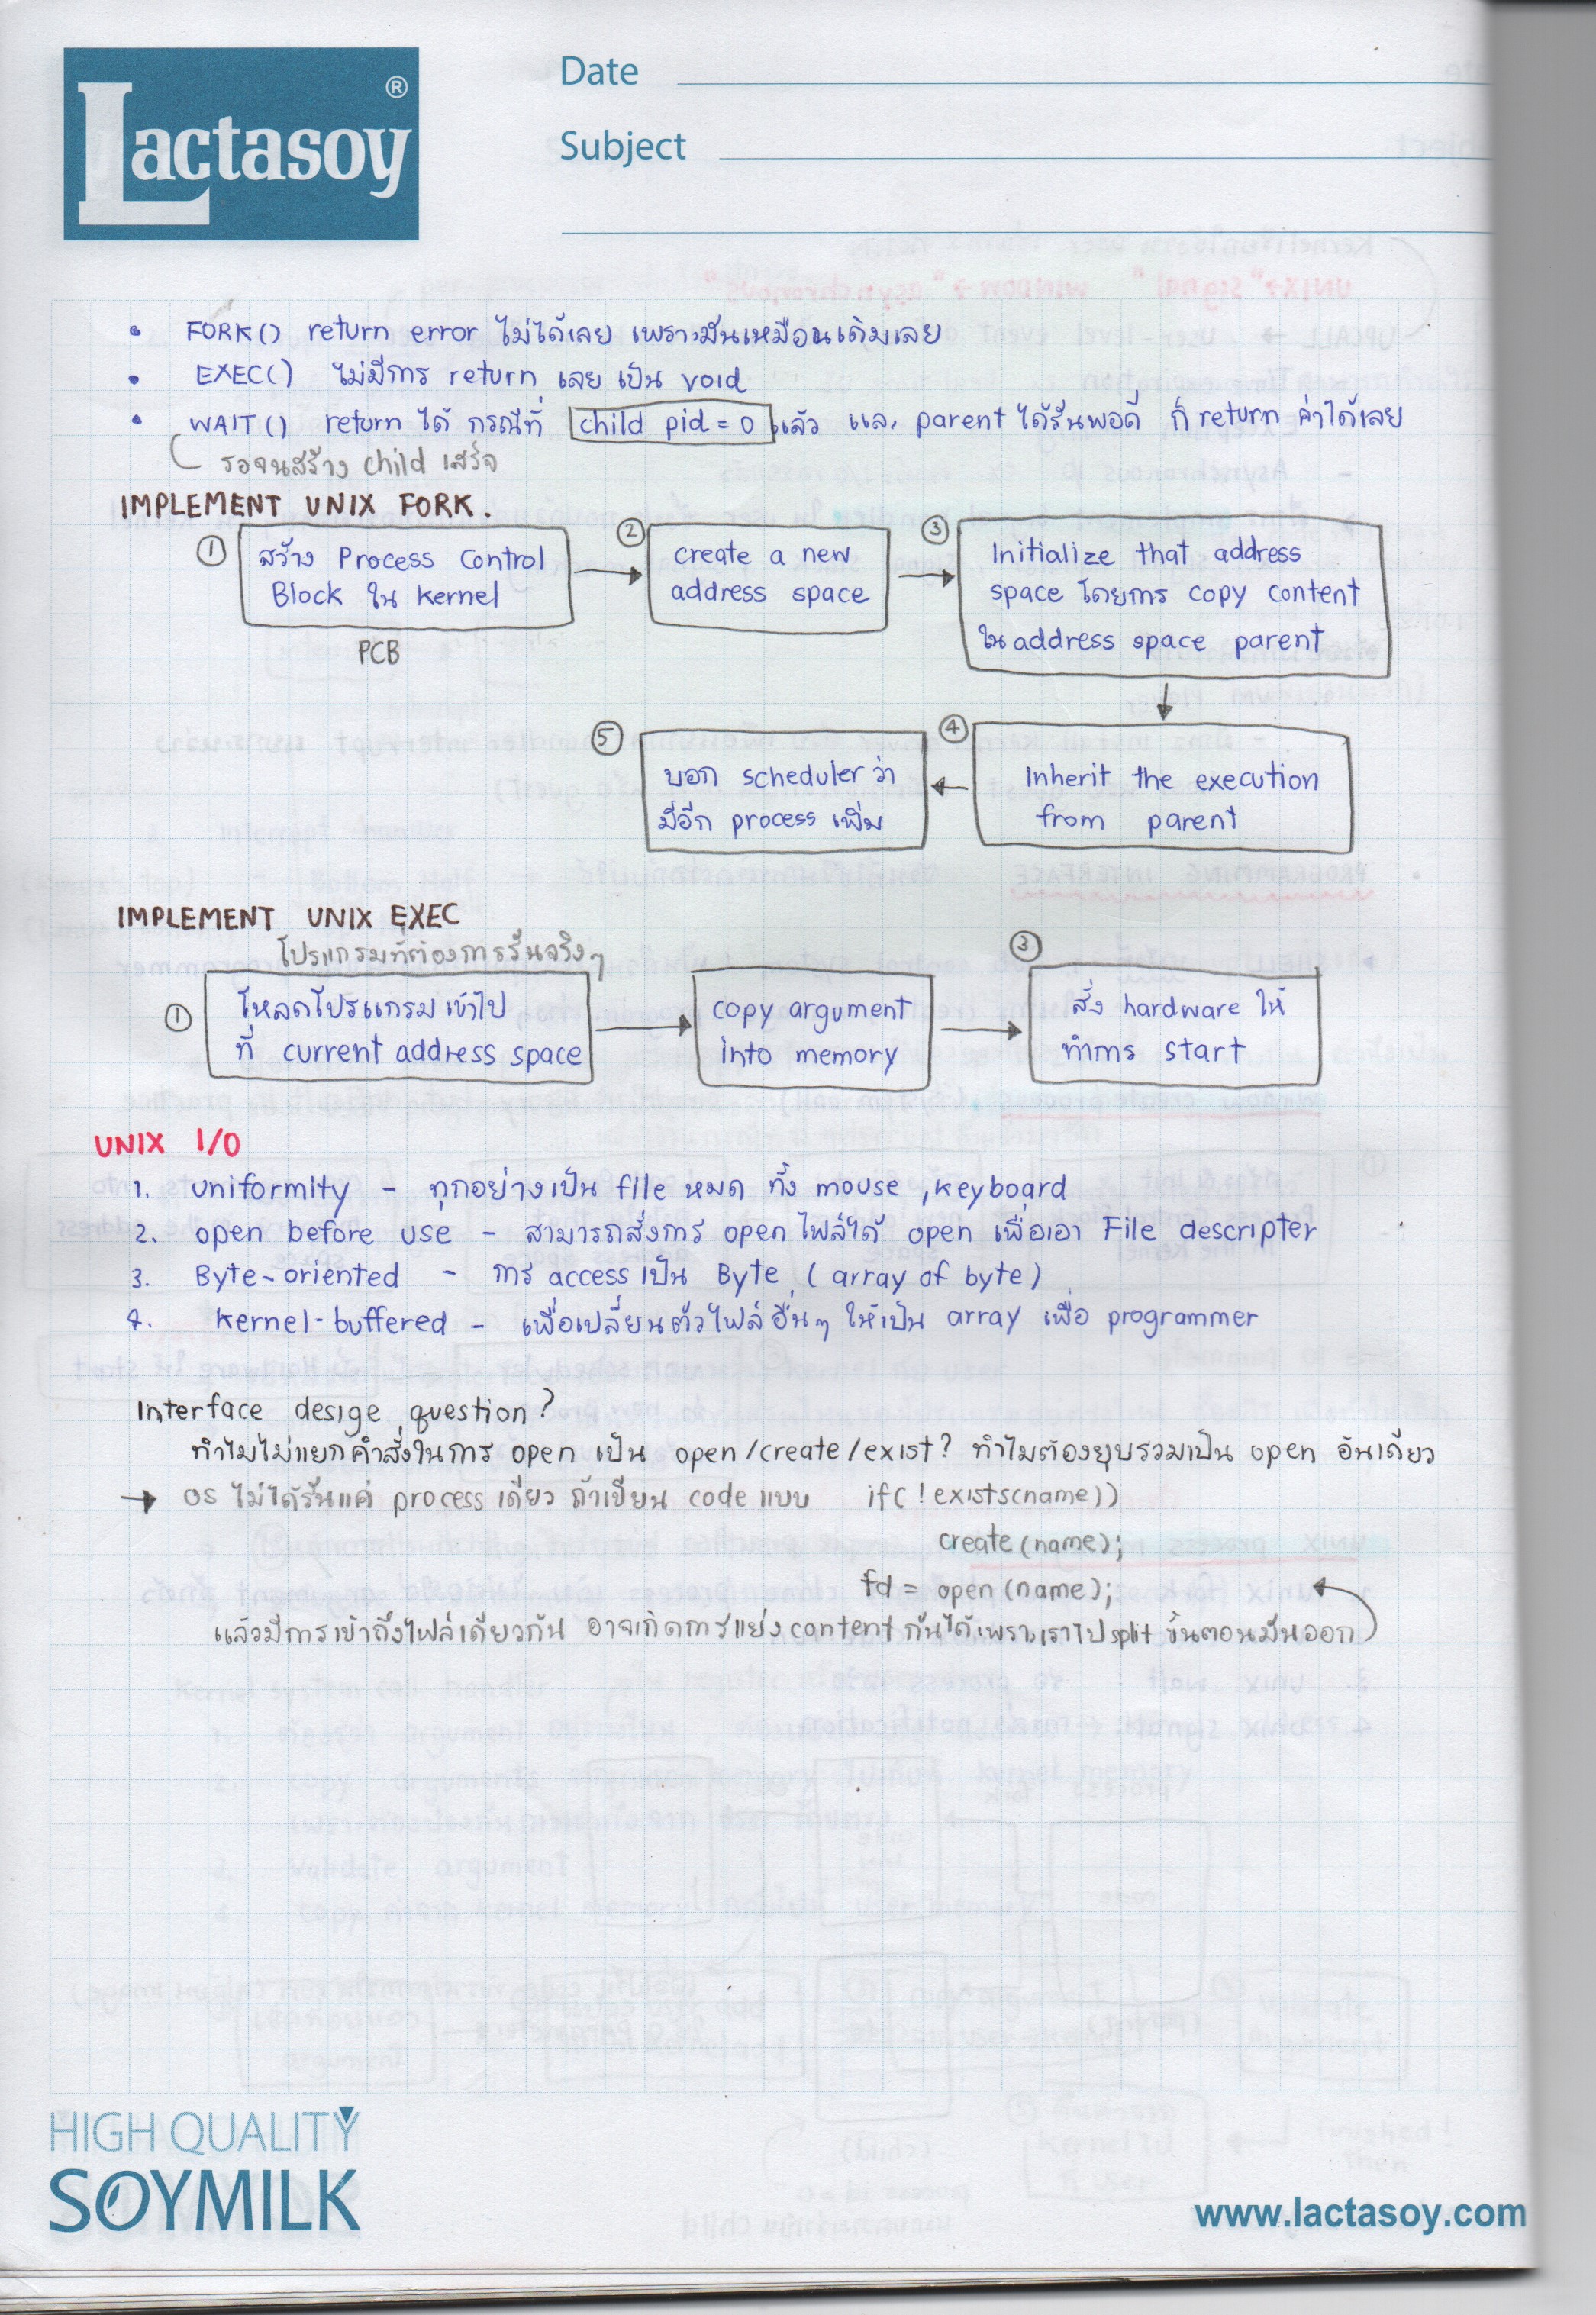 Lactasoy®
Date
Subject
• FORK() return error ไม่ได้เลย เพราะมันเหมือนเดิมเลย
• EXEC() ไม่มีการ return เลย เป็น void
• WAIT() return ได้ กรณีที่ child pid = 0 แล้ว และ parent ได้รันพอดี ก็ return ค่าได้เลย
รอจนสร้าง child เสร็จ
IMPLEMENT UNIX FORK.
① สร้าง Process Control Block ใน kernel
PCB
② create a new address space
③ Initialize that address space โดยการ copy content ใน address space parent
④ Inherit the execution from parent
⑤ บอก scheduler ว่า มีอีก process เพิ่ม
IMPLEMENT UNIX EXEC
โปรแกรมที่ต้องการรันจริงๆ
① โหลดโปรแกรมเข้าไป ที่ current address space
copy argument into memory
③ สั่ง hardware ให้ ทำการ start
UNIX I/O
1. uniformity - ทุกอย่างเป็น file หมด ทั้ง mouse, keyboard
2. open before use - สามารถสั่งการ open ไฟล์ได้ open เพื่อเอา File descripter
3. Byte-oriented - การ access เป็น Byte (array of byte)
4. kernel-buffered - เพื่อเปลี่ยนตัวไฟล์อื่นๆ ให้เป็น array เพื่อ programmer
Interface desige question?
ทำไมไม่แยกคำสั่งในการ open เป็น open/create/exist? ทำไมต้องยุบรวมเป็น open อันเดียว
→ OS ไม่ได้รันแค่ process เดียว ถ้าเขียน code แบบ if(!exists(name))
create(name);
fd = open(name);
แล้วมีการเข้าถึงไฟล์เดียวกัน อาจเกิดการแย่ง content กันได้เพราะเราไป split ขั้นตอนมันออก
HIGH QUALITY
SOYMILK
www.lactasoy.com